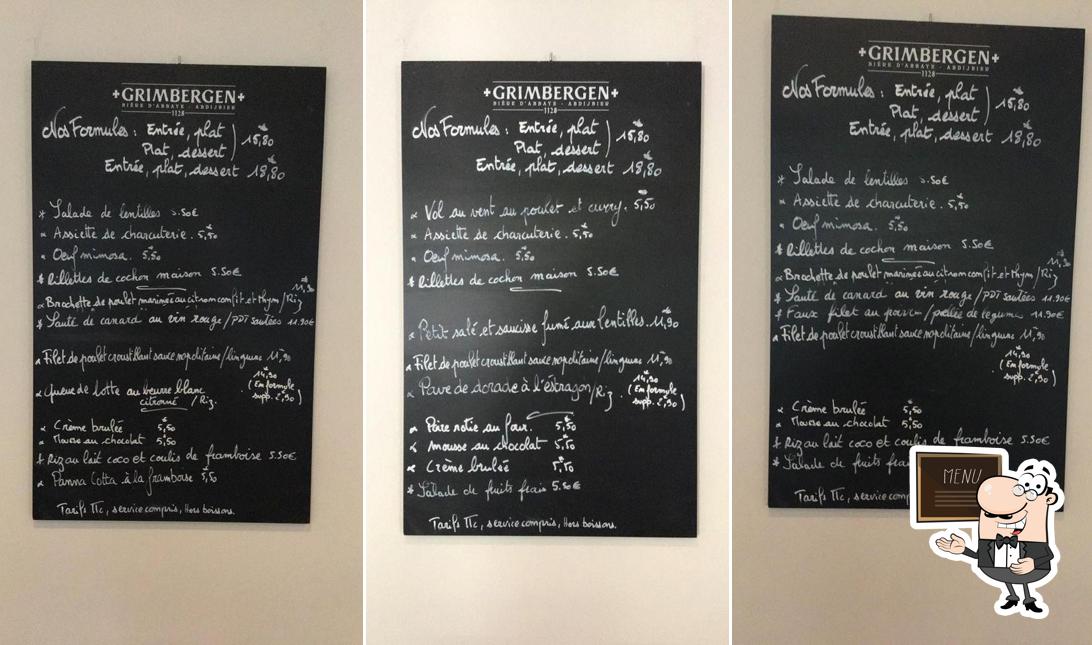 GRIMBERGEN
BIÈRE D'ABBAYE - ABDIJBIER
1128
Nos Formules : Entrée, plat
Plat, dessert 15,80
Entrée, plat, dessert 18,80
* Salade de lentilles 5.50€
* Assiette de charcuterie. 5,50
* Oeuf mimosa. 5,50
* Rillettes de cochon maison 5.50€
11,90
* Brochette de poulet marinée au citron confit et thym / Riz
* Sauté de canard au vin rouge / PDT sautées 11.90€
* Filet de poulet croustillant sauce napolitaine / linguine 11,90
* Queue de lotte au beurre blanc
citronné / Riz.
14,90
(En formule
supp. 2,90)
* Crème brulée 5,50
* Mousse au chocolat 5,50
* Riz au lait coco et coulis de framboise 5.50€
* Panna Cotta à la framboise 5,50
Tarifs TTc, service compris, Hors boissons.
GRIMBERGEN
BIÈRE D'ABBAYE - ABDIJBIER
1128
Nos Formules : Entrée, plat
Plat, dessert 15,80
Entrée, plat, dessert 18,80
* Vol au vent au poulet et curry. 5,50
* Assiette de charcuterie. 5,50
* Oeuf mimosa. 5,50
* Rillettes de cochon maison 5.50€
* Petit salé et saucisse fumé aux lentilles. 11,90
* Filet de poulet croustillant sauce napolitaine / linguine 11,90
* Pavé de dorade à l'éstragon / Riz
14,90
(En formule
supp. 2,90)
* Poire rotie au four. 5,50
* mousse au chocolat 5,50
* Crème brulée 5,50
* Salade de fruits frais 5.50€
Tarifs TTc, service compris, Hors boissons.
GRIMBERGEN
BIÈRE D'ABBAYE - ABDIJBIER
1128
Nos Formules : Entrée, plat
Plat, dessert 15,80
Entrée, plat, dessert 18,80
* Salade de lentilles 5.50€
* Assiette de charcuterie. 5,50
* Oeuf mimosa. 5,50
* Rillettes de cochon maison 5.50€
11,90
* Brochette de poulet marinée au citron confit et thym / Riz
* Sauté de canard au vin rouge / PDT sautées 11.90€
* Faux filet au poivre / poêlée de legume 11.90€
* Filet de poulet croustillant sauce napolitaine / linguine 11,90
14,90
(En formule
supp. 2,90)
* Crème brulée 5,50
* Mousse au chocolat 5,50
* Riz au lait coco et coulis de framboise 5.50€
* Salade de fruits frais
Tarifs TTc, service
MENU